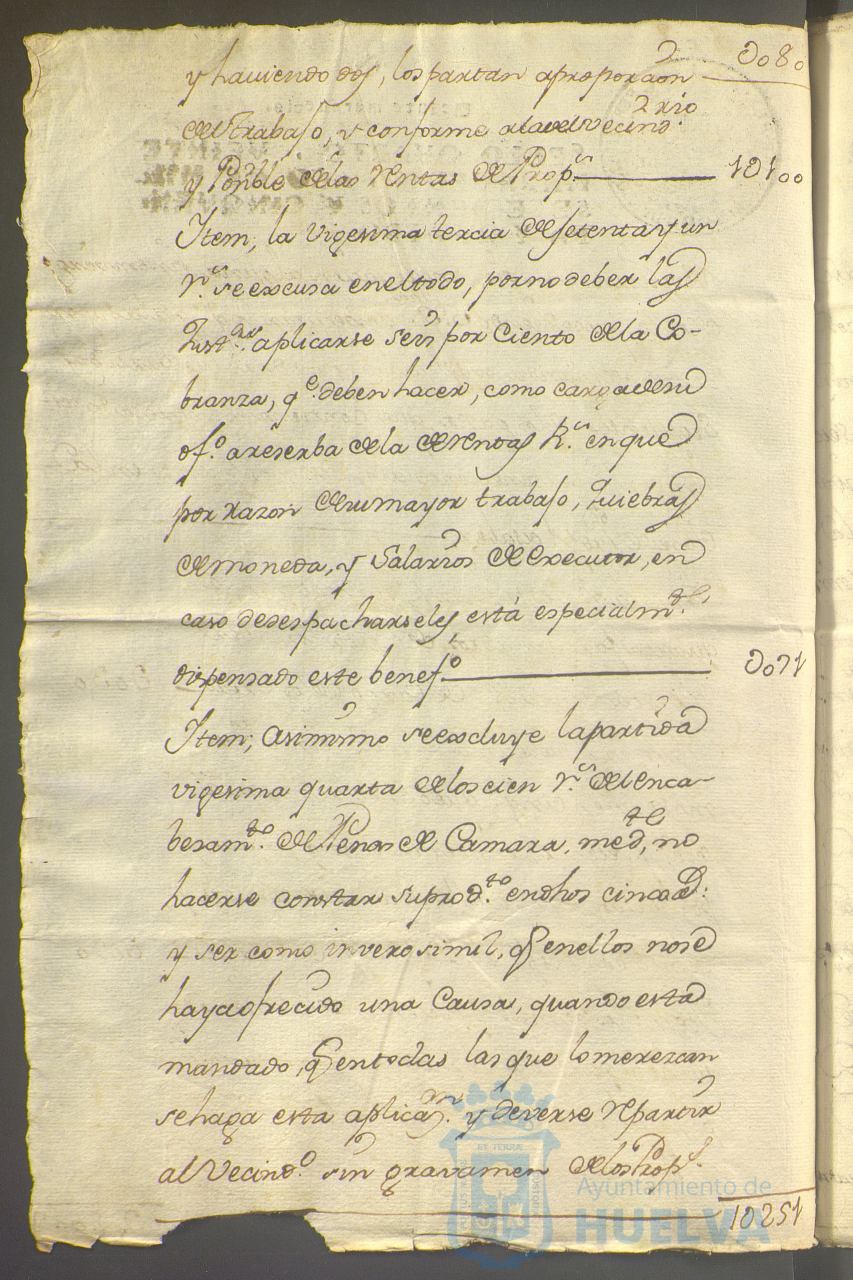 D080
y haviendo dos, los partan a proporcion
del trabajo, y conforme a la del Vecind.rio
y Posible de las rentas de Prop.s — 1D100
Item, la Vigesima tercia de setenta y un
r.s se excusa en el todo, por no deber las
Just.as aplicarse seis por Ciento de la Co-
branza, q.e deben hacer, como carga de su
of.o a reserba de la de rentas R.s en que
por razon de su mayor trabajo, quiebras
de moneda, y Salarios de executor, en
caso de despacharseles está especialm.te
dispensado este benef.o — D071
Item, asimismo se excluye la partida
vigesima quarta de los cien r.s del enca-
besam.to de Penas de Camara, med.te no
hacerse constar su prod.to en dhos cinco a.s
y ser como inverosimil, q en ellos no se
haya ofrecido una Causa, quando está
mandado, q en todas las que lo merezcan
se haga esta aplicaz.on y deverse repartir
al Vecind.o sin gravamen de los Prop.s
1D251
Ayuntamiento de
HUELVA